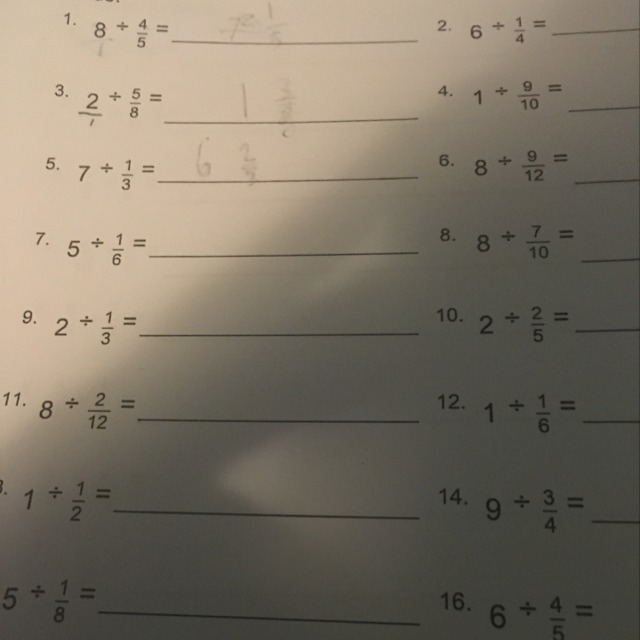 1. 8 ÷ 4/5 = 7 1/5
2. 6 ÷ 1/4 =
3. 2 ÷ 5/8 = 1 3/8
4. 1 ÷ 9/10 =
5. 7 ÷ 1/3 = 6 2/3
6. 8 ÷ 9/12 =
7. 5 ÷ 1/6 =
8. 8 ÷ 7/10 =
9. 2 ÷ 1/3 =
10. 2 ÷ 2/5 =
11. 8 ÷ 2/12 =
12. 1 ÷ 1/6 =
1 ÷ 1/2 =
14. 9 ÷ 3/4 =
5 ÷ 1/8 =
16. 6 ÷ 4/5 =